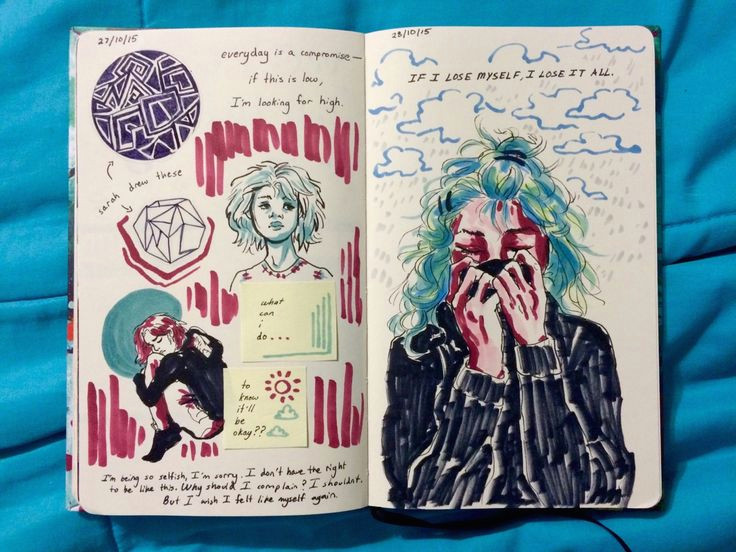 27/10/15
everyday is a compromise—
if this is low,
I'm looking for high.
sarah drew these
what
can
i
do...
to
know
it'll
be
okay??
I'm being so selfish, I'm sorry. I don't have the right
to be like this. Why should I complain? I shouldn't.
But I wish I felt like myself again.
28/10/15
IF I LOSE MYSELF, I LOSE IT ALL.